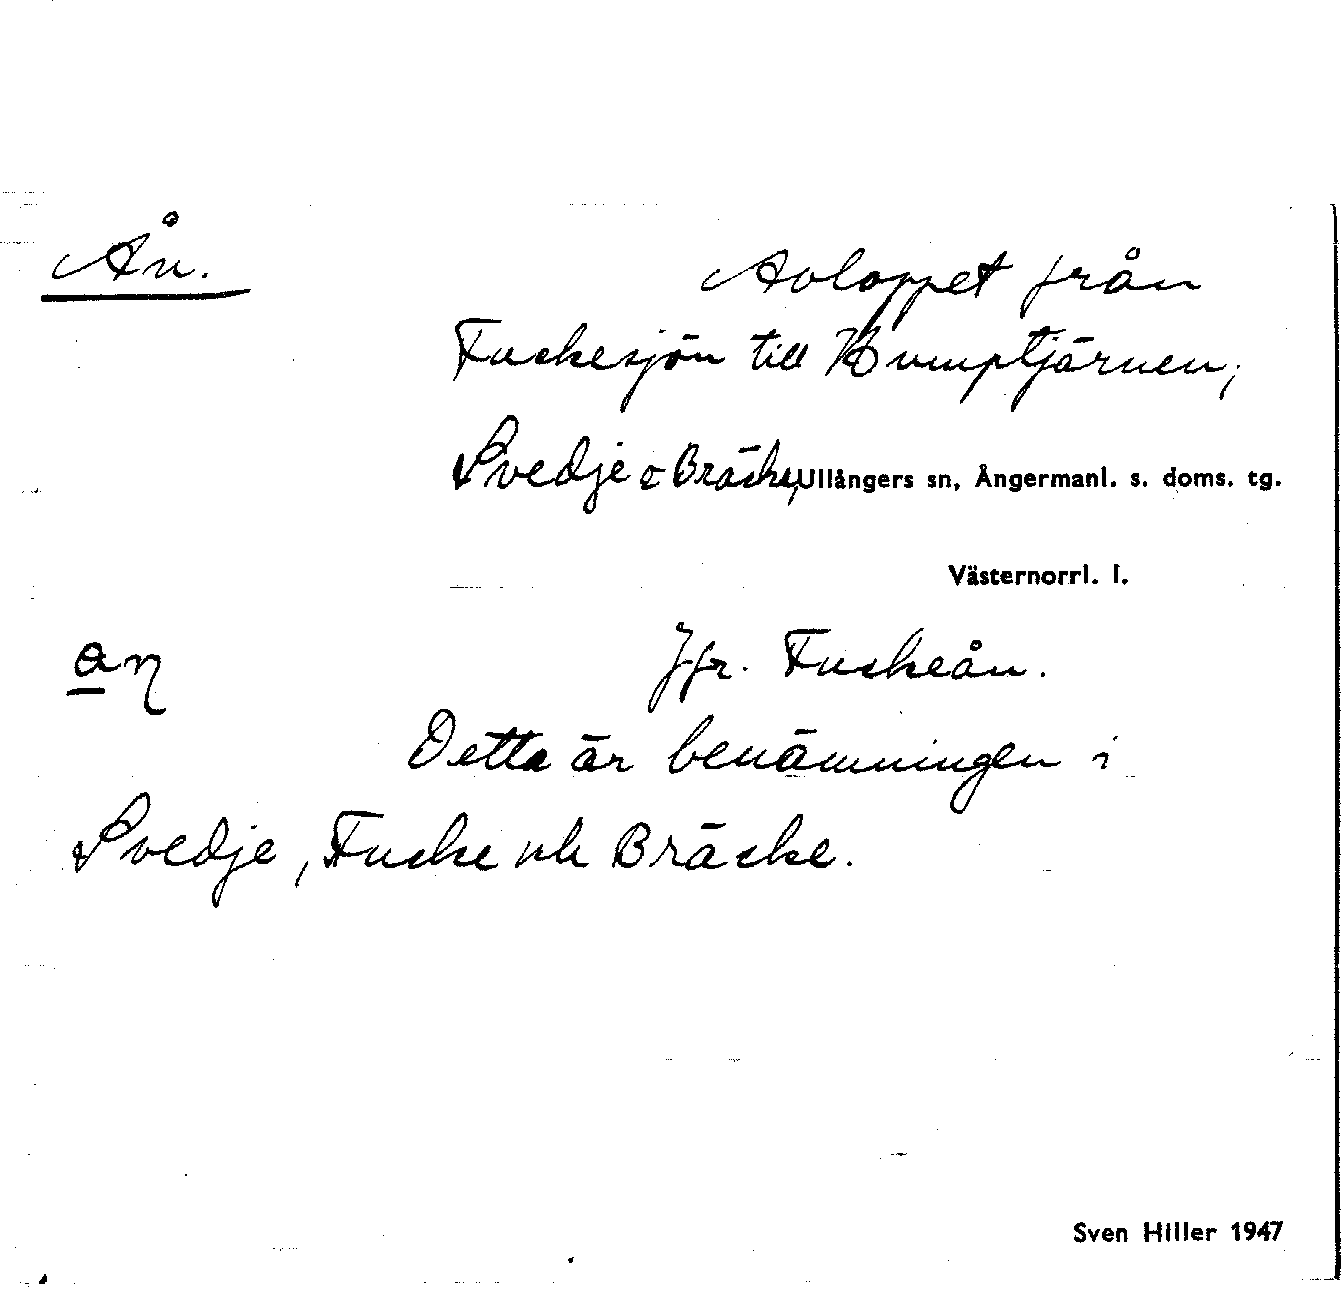 Ån.
Avloppet från
Fuskesjön till Kumptjärnen,
Svedje o Bräcke, Ullångers sn, Ångermanl. s. doms. tg.
Västernorrl. l.
Jfr. Fuskeån.
Detta är benämningen i
Svedje, Fuske och Bräcke.
Sven Hiller 1947